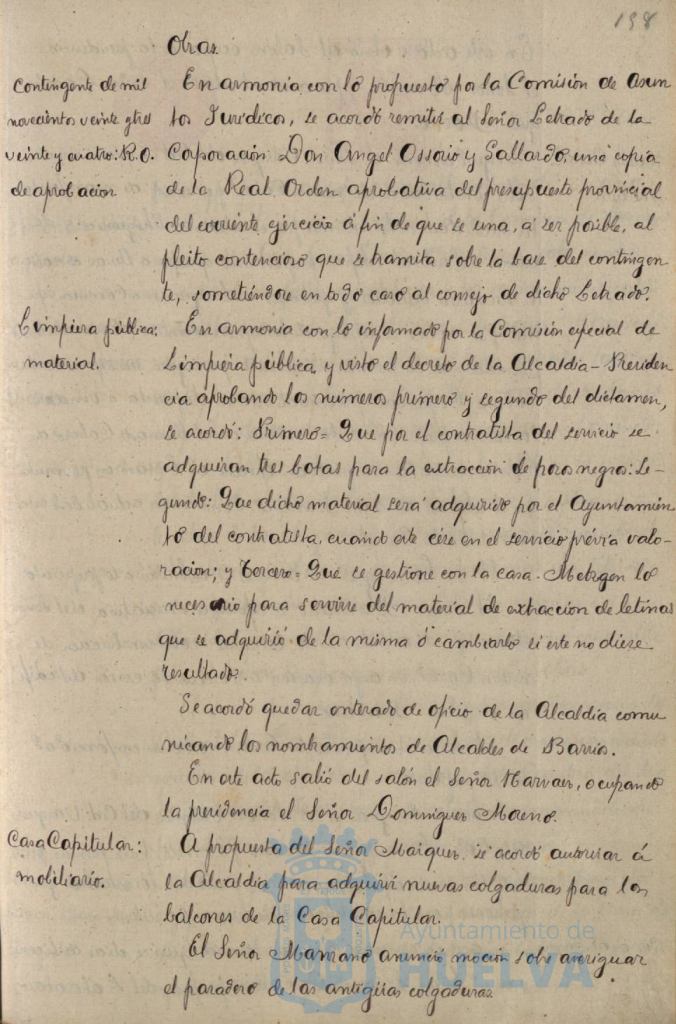 198
Obras.
Contingente de mil
novecientos veinte y tres
veinte y cuatro: R.O.
de aprobacion
En armonia con lo propuesto por la Comisión de Asun
tos Jurídicos, se acordó remitir al Señor Letrado de la
Corporación Don Angel Ossorio y Gallardo, una copia
de la Real Orden aprobativa del presupuesto provincial
del corriente ejercicio á fin de que se una, á ser posible, al
pleito contencioso que se tramita sobre la base del contingen
te, sometiéndose en todo caso al consejo de dicho Letrado.
Limpieza pública:
material.
En armonia con lo informado por la Comisión especial de
Limpieza pública, y visto el decreto de la Alcaldia-Presiden
cia aprobando los números primero y segundo del dictamen,
se acordó: Primero= Que por el contratista del servicio se
adquieran tres botas para la extracción de pozos negros: Se-
gundo: Que dicho material será adquirido por el Ayuntamien
to del contratista, cuando este cese en el servicio prévia valo-
racion; y Tercero= Que se gestione con la casa Metzgen lo
necesario para servirse del material de extracción de letrinas
que se adquirió de la misma ó cambiarlo si este no diese
resultado.
Se acordó quedar enterado de oficio de la Alcaldia comu
nicando los nombramientos de Alcaldes de Barrios.
En este acto salió del salón el Señor Narvaes, ocupando
la presidencia el Señor Dominguez Moreno.
Casa Capitular:
mobiliario.
A propuesta del Señor Maiquez se acordó autorizar á
la Alcaldia para adquirir nuevas colgaduras para los
balcones de la Casa Capitular.
El Señor Manzano anunció moción sobre averiguar
el paradero de las antigüas colgaduras.
Ayuntamiento de
HUELVA